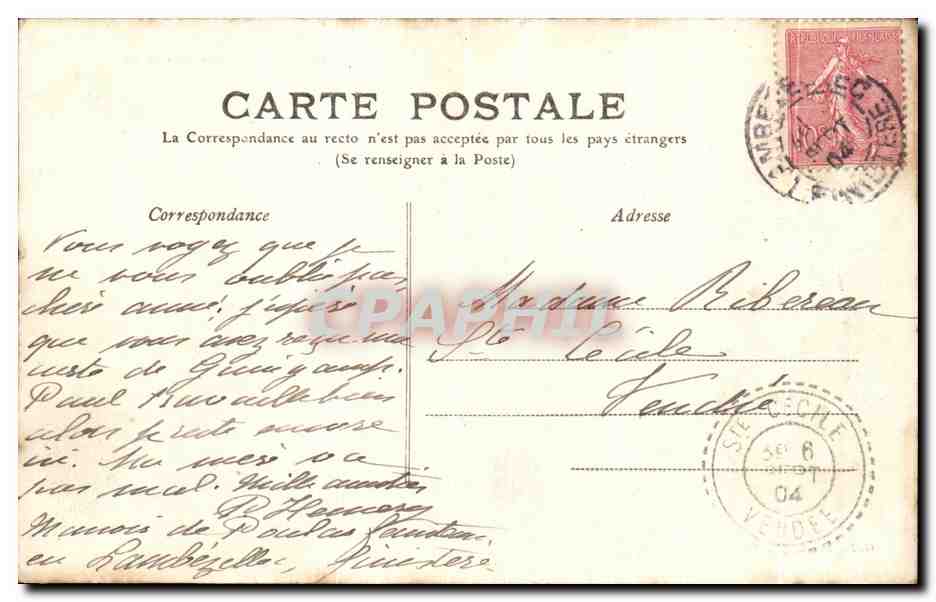 REPUBLIQUE FRANÇAISE
CARTE POSTALE
La Correspondance au recto n'est pas acceptée par tous les pays étrangers
(Se renseigner à la Poste)
SEPT
04
FINISTERE
Correspondance
Vous voyez que je
ne vous oublie pas,
chère amie. J'espère
que vous avez reçu ma
carte de Guingamp.
Paul travaille bien
alors je reste encore
ici. Ma mère va
pas mal. Mille amitiés
Manoir de
en Lambézellec, Finistère
Adresse
Madame Ribereau
Ste Cécile
Vendée
CPAPHIL
STE CÉCILE
6
SEPT
04
VENDÉE